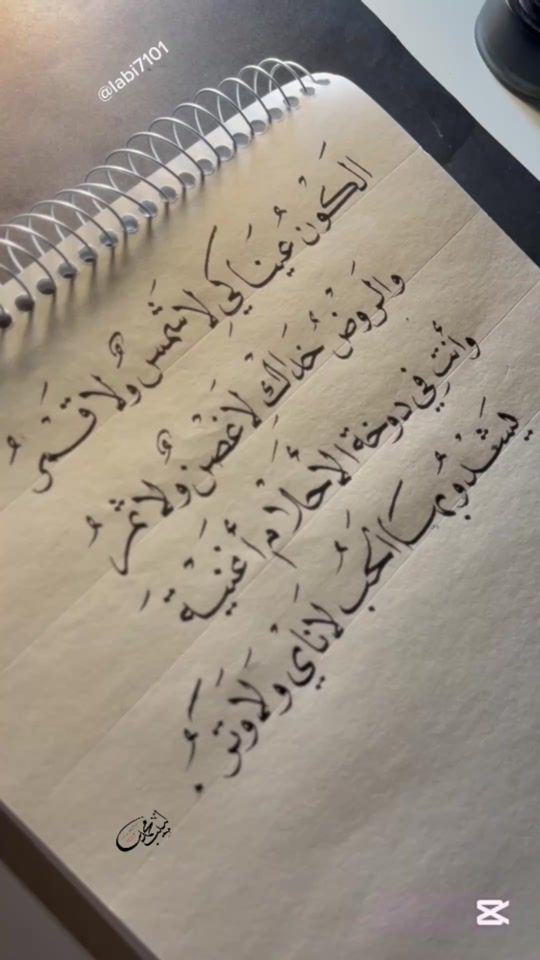 @labi7101
الكَوْنُ عُيناكِ لا شَمسٌ ولا قَمْرُ
والروضُ خُداكِ لا غصنٌ ولا ثمرُ
وأنتِ في دوخة الأحلام أغنيةَ
يشدو بها الحب لا ناي ولا وترُ